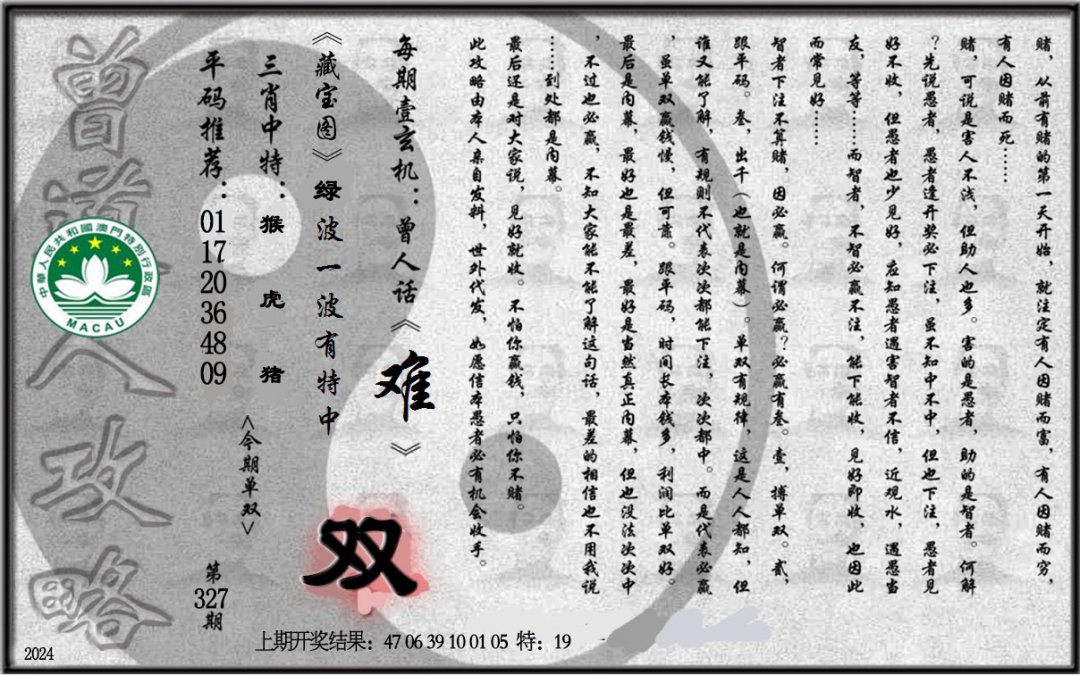 赌，从前有赌的第一天开始，就注定有人因赌而富，有人因赌而穷，
有人因赌而死……
赌，可说是害人不浅，但助人也多。害的是愚者，助的是智者。何解
？先说愚者，愚者逢开奖必下注，虽不知中不中，但也下注，愚者见
好不收，但愚者也少见好，应知愚者遇害智者不信，近观水，遇愚当
友，等等……而智者，不智必赢不注，能下能收，见好即收，也因此
而常见好……
智者下注不算赌，因必赢。何谓必赢？必赢有叁。壹，搏单双。贰，
跟平码。叁，出千（也就是内幕）。单双有规律，这是人人都知，但
谁又能了解，有规则不代表次次都能下注，次次都中。而是代表必赢
，虽单双赢钱慢，但可靠。跟平码，时间长本钱多，利润比单双好。
最后是内幕，最好也是最差，最好是当然真正内幕，但也没法次次中
，不过也必赢，不知大家能不能了解这句话，最差的相信也不用我说
……到处都是内幕。
最后还是对大家说，见好就收。不怕你赢钱，只怕你不赌。
此攻略由本人亲自发料，世外代发，如愿信本愚者必有机会收手。
每期壹玄机：曾人话《难》
《藏宝图》绿波一波有特中
三肖中特：猴 虎 猪
平码推荐：01 17 20 36 48 09
<今期单双>
双
第327期
曾道人攻略
中華人民共和國澳門特別行政區
MACAU
上期开奖结果：47 06 39 10 01 05 特：19
2024